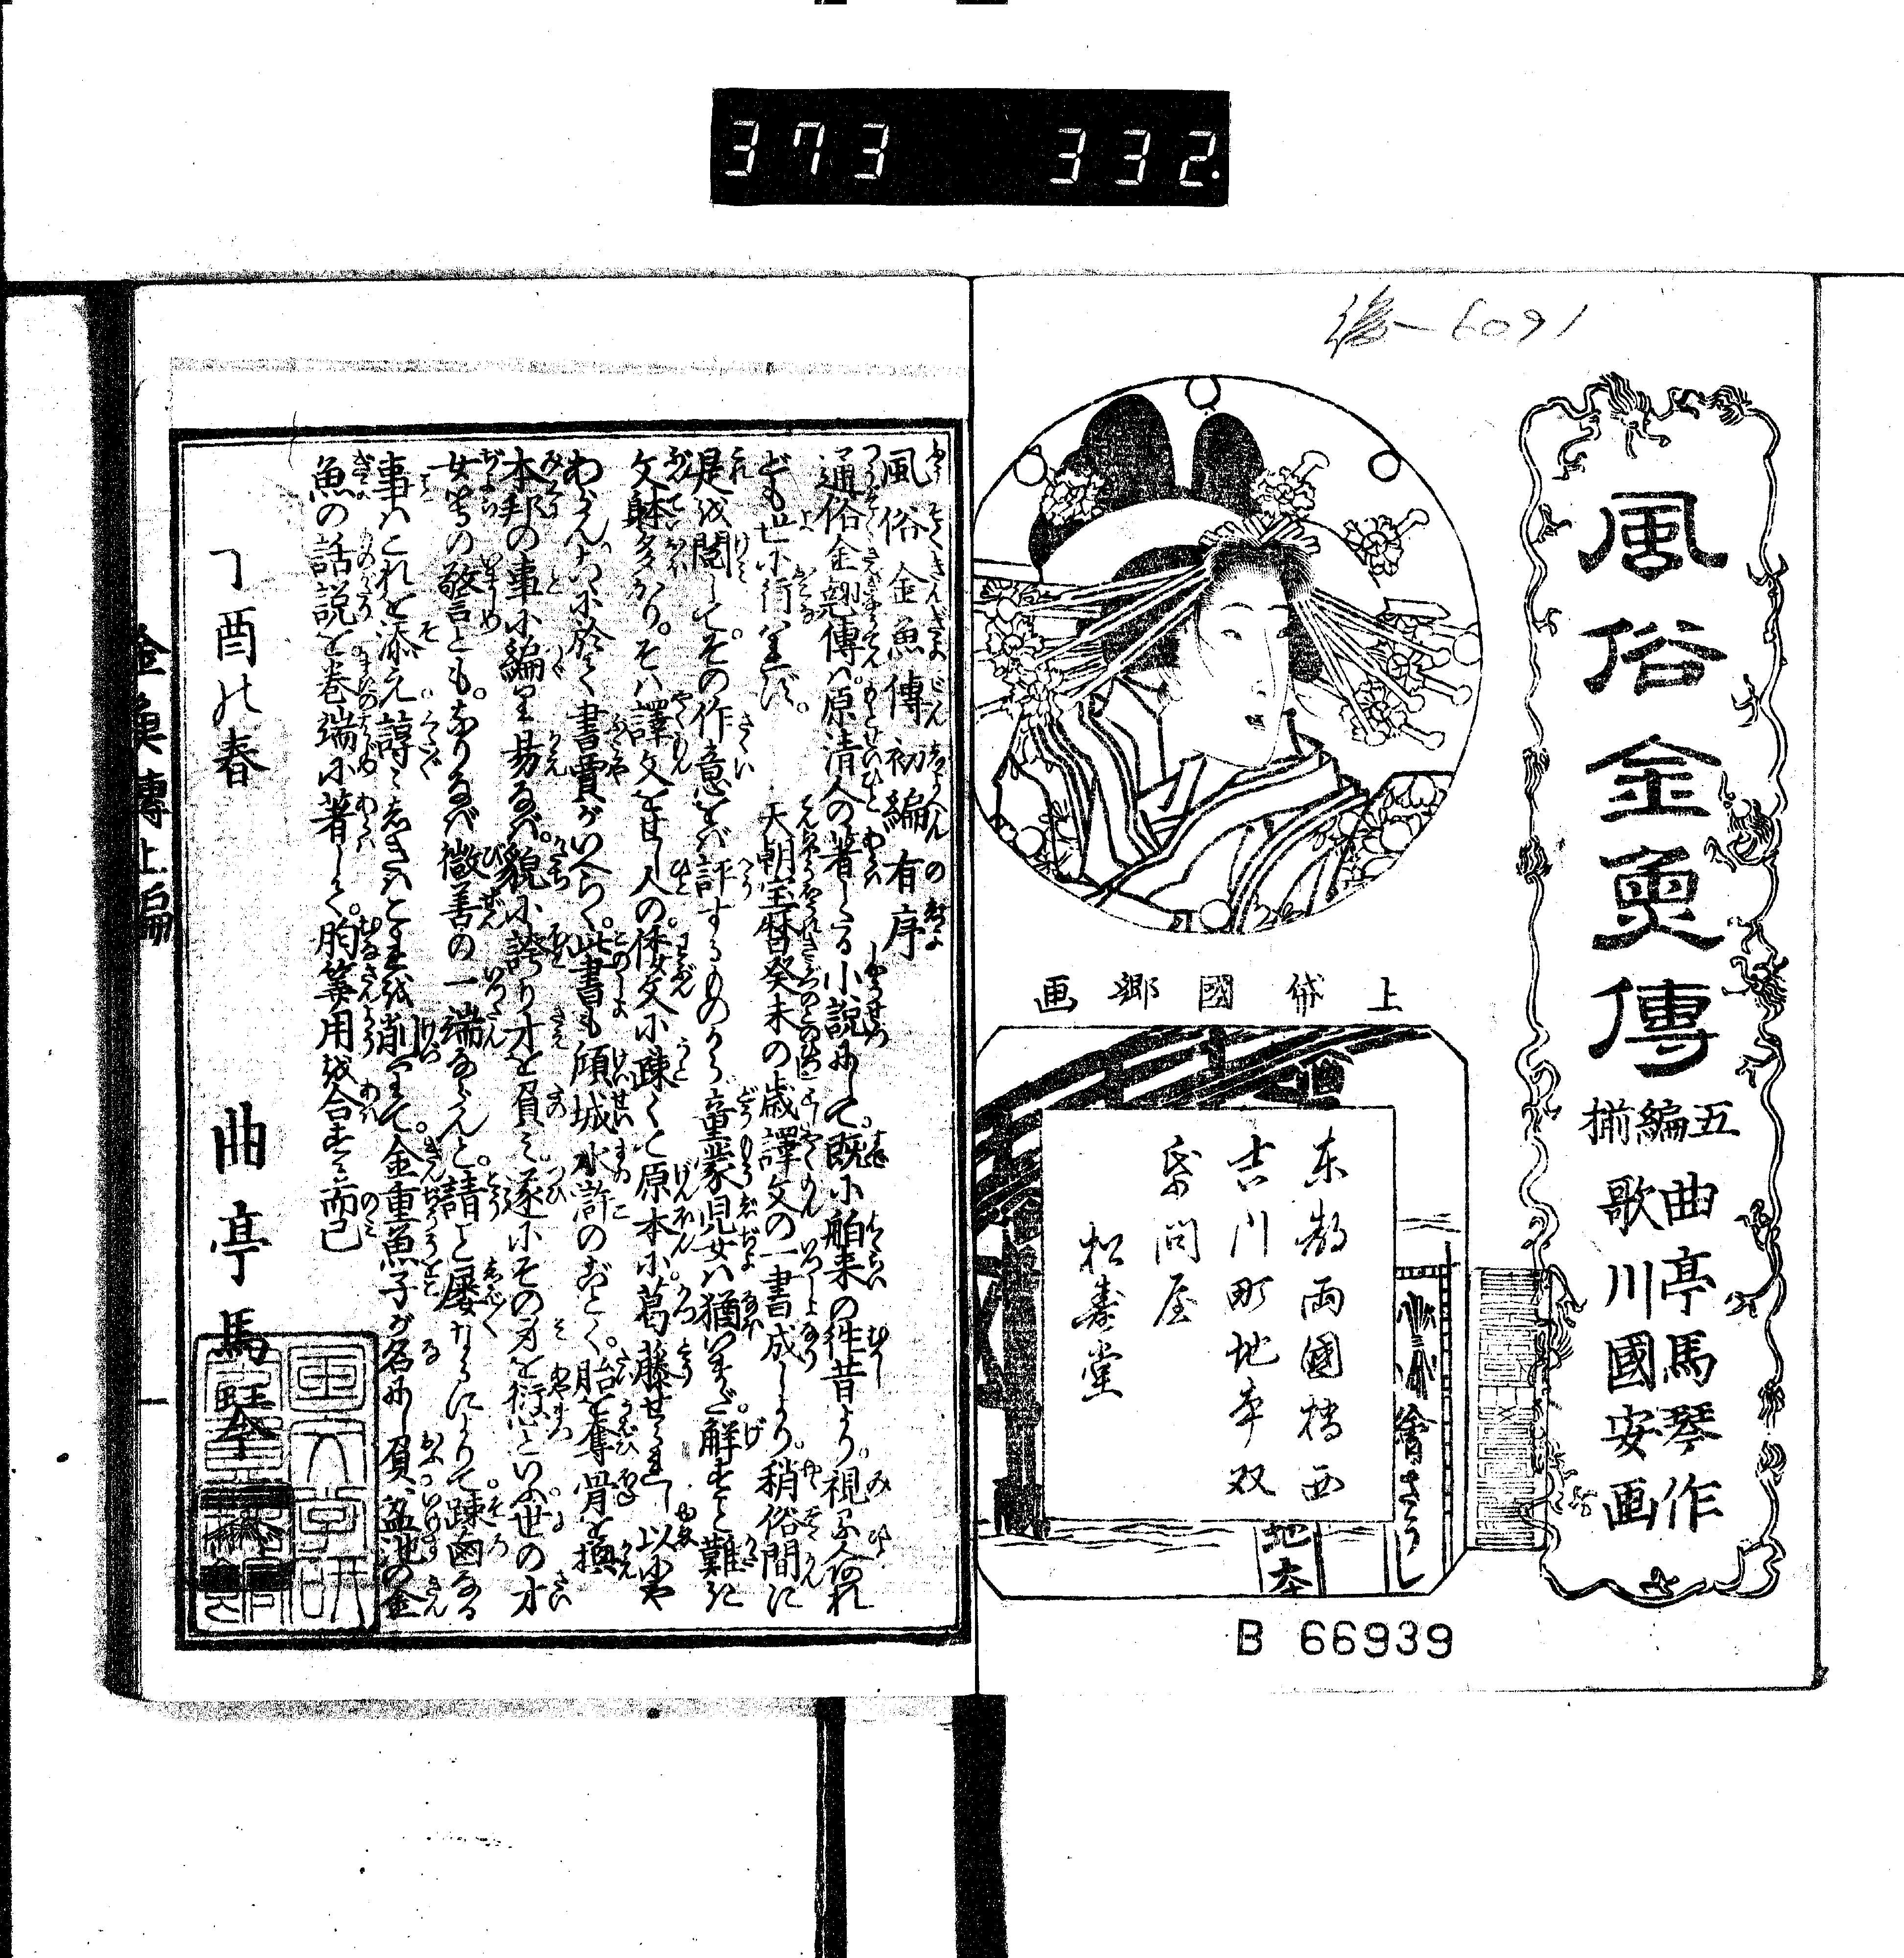 373 332.
後-6091
風俗金魚傳
五編揃
曲亭馬琴作
歌川國安画
上帙國郷画
东都兩國橋西
吉川町地本双
帋問屋
松壽堂
繪ざうし
地本
B 66939
風俗金魚傳初編有序
通俗金翹傳ハ原清人の著したる小説にして。既に舶来の往昔より視る人あれ
ども世に行はれず。天朝宝暦癸未の歳譯文の一書成しより。稍俗間に
是を閲して。その作意をバ評するものから童蒙児女ハ猶いまだ解すこと難き
文躰多かり。そハ譯文を甘し人の。倭文に疎くて原本に。葛藤せられし以に
わがんなに於て書賈がいへらく。此書も傾城水滸のごとく。胎を奪骨を換
本邦の事に編み易なバ。貌に誇り才を負みて遂にその身を衍といふ世の才
女等の警ともなりなバ懲善の一端ならんと。請こと屡なるによりて疎鹵なる
事ハこれを添え諄々しきハこれを削りて。金重魚子が名にし負盆池の金
魚の話説を巻端に著して。胸筭用を合すこと而已
丁酉の春
曲亭馬琴
金魚傳上編
一